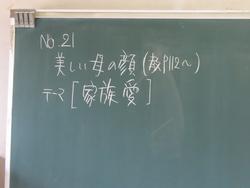 No.21
美しい母の顔(教P112〜)
テーマ[家族愛]